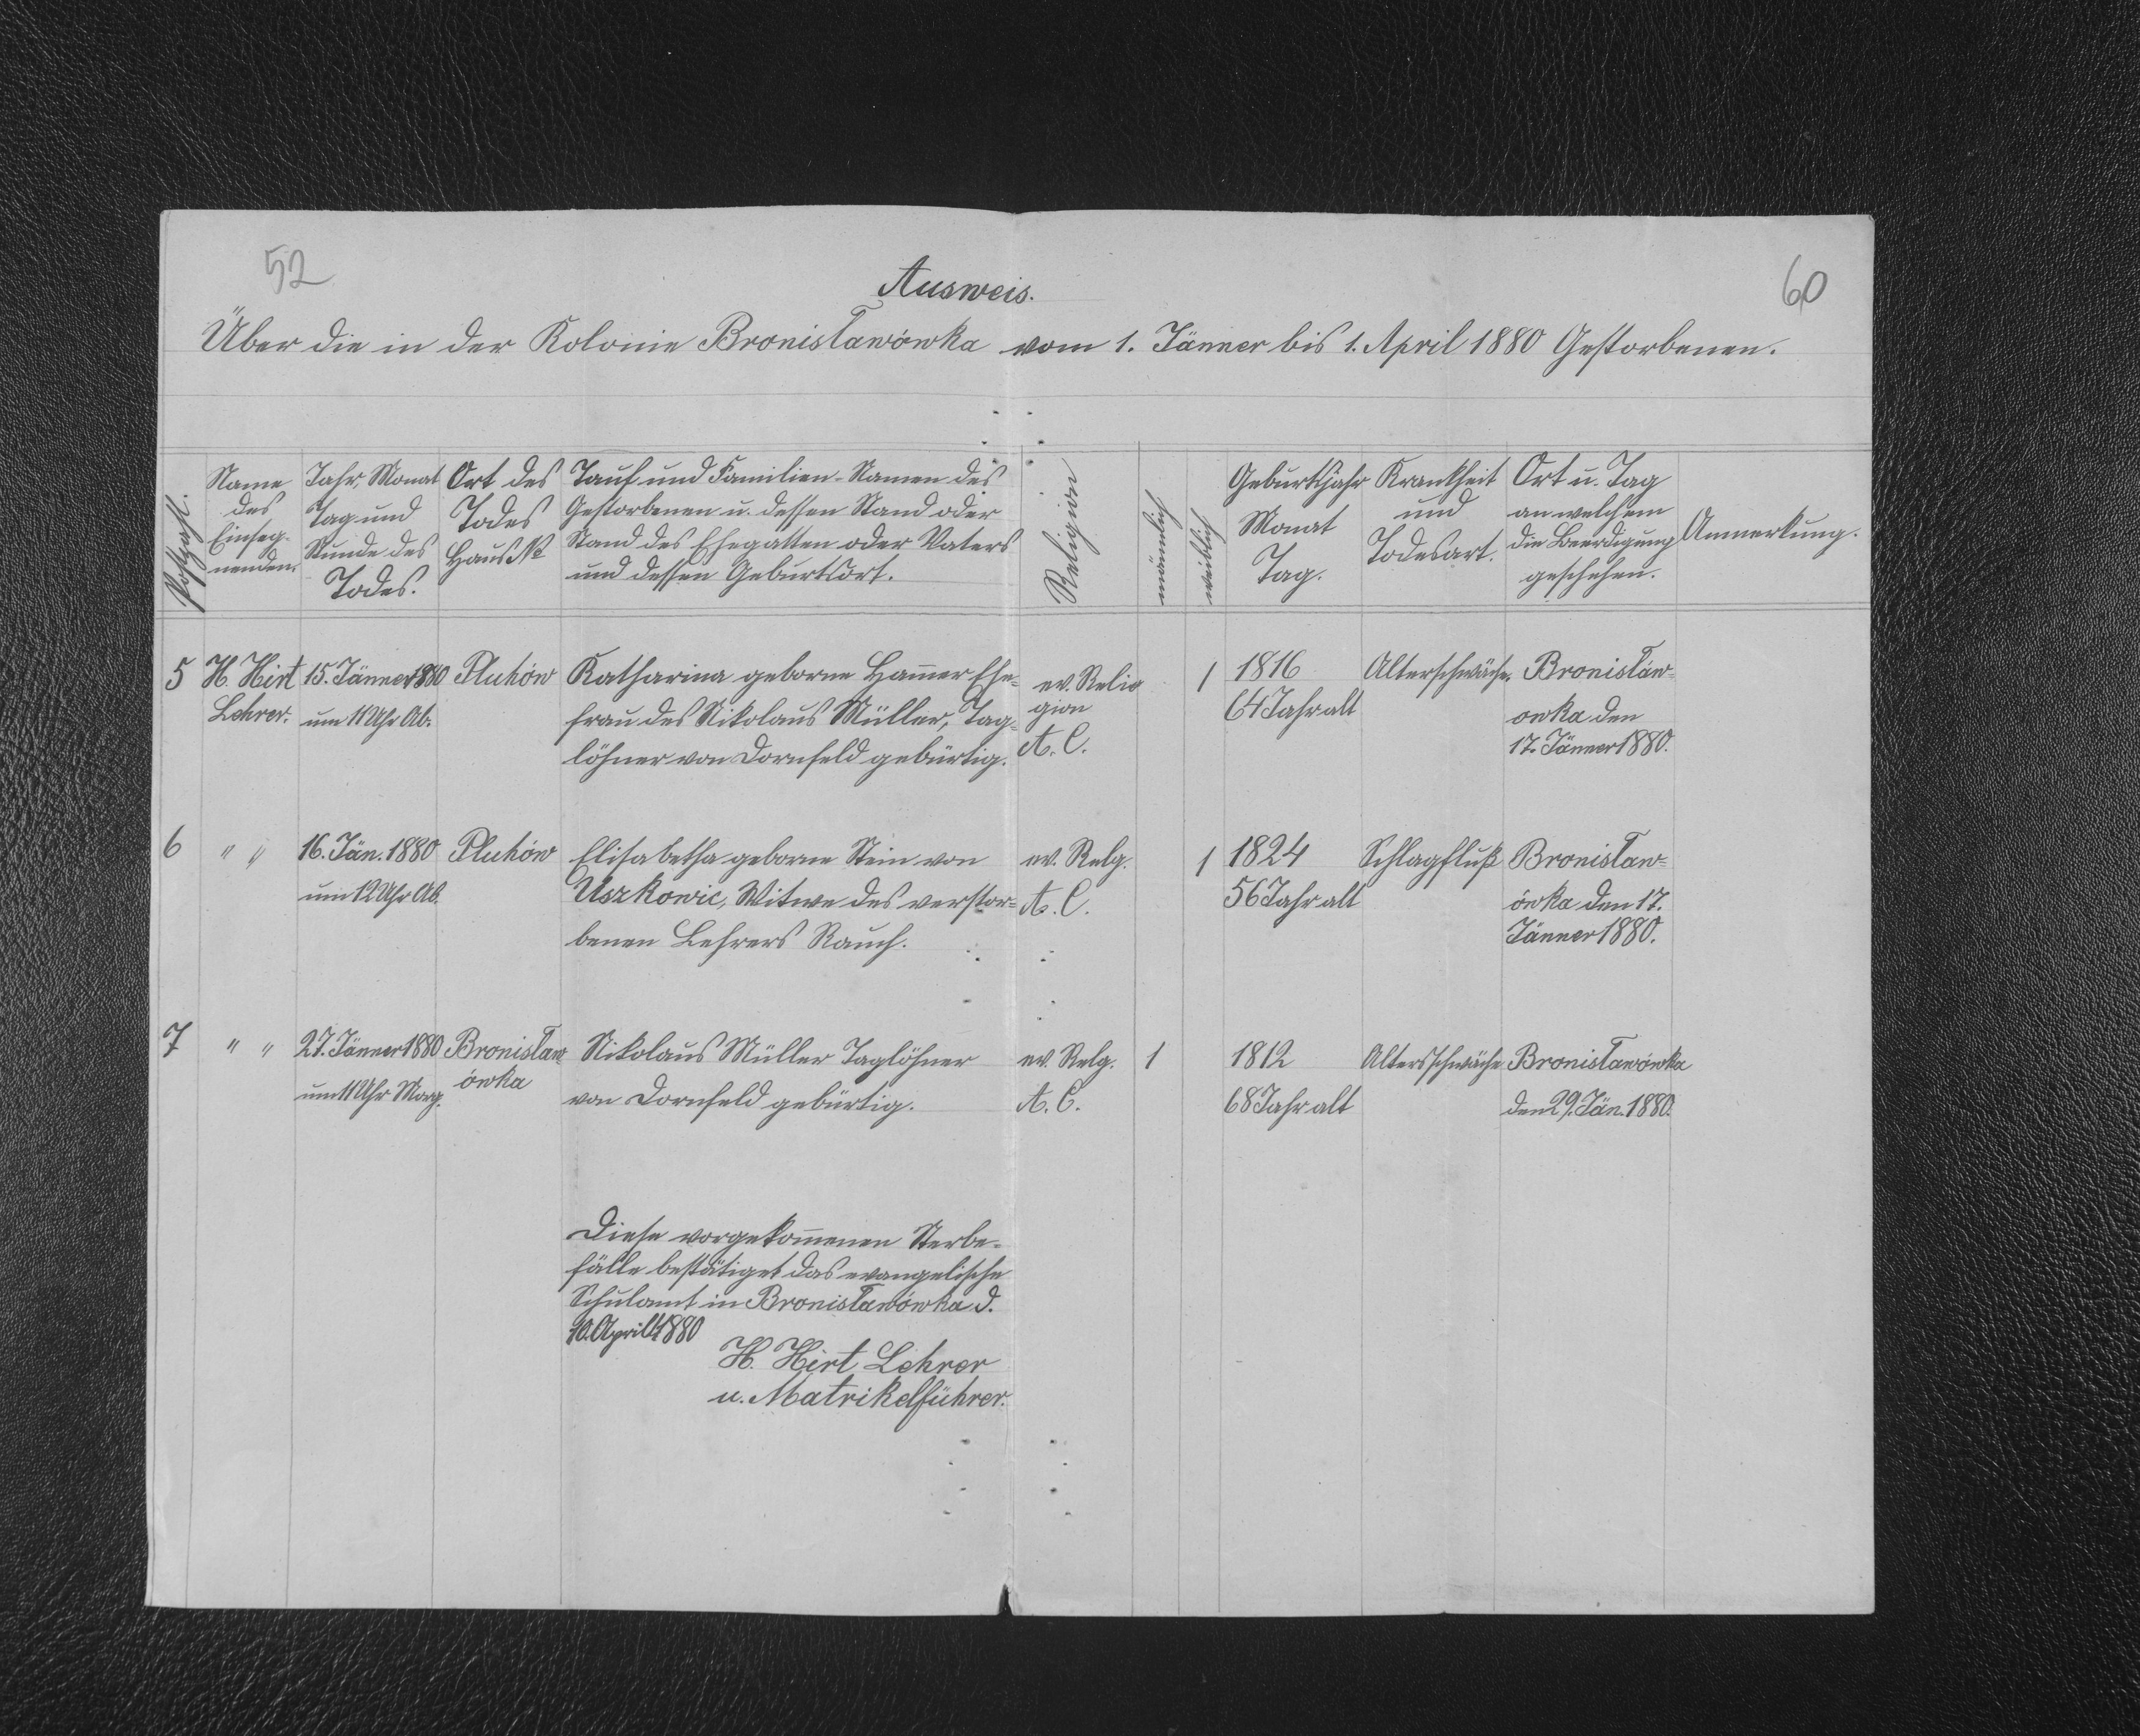 52
60
Ausweis.
Über die in der Kolonie Bronisławówka vom 1. Jänner bis 1. April 1880 Gestorbenen.
Postzahl.
Name
des
Einseg-
nenden.
Jahr, Monat
Tag und
Stunde des
Todes.
Ort des
Todes
Haus №
Tauf und Familien-Namen des
Gestorbenen u. dessen Stand oder
Stand des Ehegatten oder Vaters
und dessen Geburtsort.
Religion
männlich
weiblich
Geburtsjahr
Monat
Tag.
Krankheit
und
Todesart.
Ort u. Tag
an welchem
die Beerdigung
geschehen.
Anmerkung.
5
H. Hirt
Lehrer.
15. Jänner 1880
um 11 Uhr Ab.
Pluhów
Katharina geborne Ham̄er Ehe=
frau des Nikolaus Müller, Tag=
löhner von Dornfeld gebürtig.
ev. Relig
gion
A. C.
1
1816
64 Jahr alt
Alterschwäche.
Bronisław=
owka den
17. Jänner 1880.
6
" "
16. Jän. 1880
um 12 Uhr Ab.
Pluhów
Elisabetha geborne Stein von
Uszkowic, Witwe des verstor=
benen Lehrers Rauch.
ev. Relg.
A. C.
1
1824
56 Jahr alt
Schlagfluß
Bronisław=
ówka den 17.
Jänner 1880.
7
" "
27. Jänner 1880
um 11 Uhr Morg.
Bronisław
ówka
Nikolaus Müller Taglöhner
von Dornfeld gebürtig.
ev. Relg.
A. C.
1
1812
68 Jahr alt
Altersschwäche
Bronisławówka
den 29. Jän. 1880.
Diese vorgekom̄enen Sterbe-
fälle bestätiget das evangelische
Schulamt in Bronisławówka d.
10. April 1880
H. Hirt Lehrer
u. Matrikelführer.